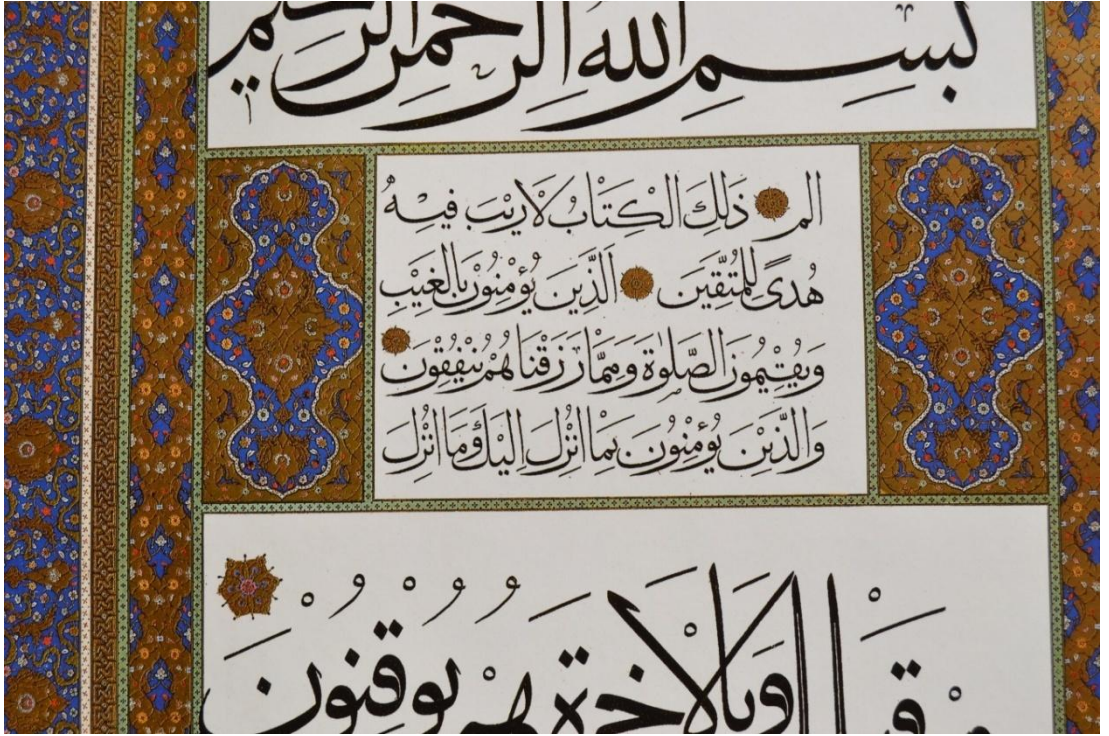 بسم الله الرحمن الرحيم
الم ذَلِكَ الْكِتَابُ لَا رَيْبَ فِيهِ
هُدًى لِلْمُتَّقِينَ اَلَّذِينَ يُؤْمِنُونَ بِالْغَيْبِ
وَيُقِيمُونَ الصَّلٰوةَ وَمِمَّا رَزَقْنَاهُمْ يُنْفِقُونَ
وَالَّذِينَ يُؤْمِنُونَ بِمَا اُنْزِلَ اِلَيْكَ وَمَا اُنْزِلَ
وَبِالْاٰخِرَةِ هُمْ يُوقِنُونَ